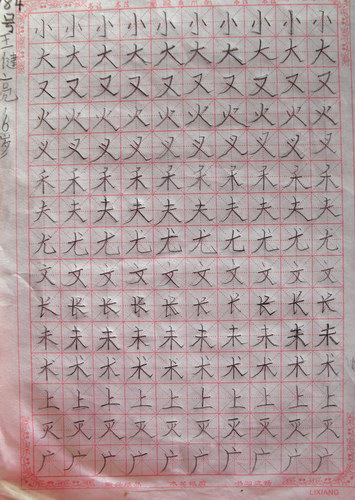 84号王健亮 6岁
小小小小小小小小小小
大大大大大大大大大大
又又又又又又又又又又
火火火火火火火火火火
叉叉叉叉叉叉叉叉叉叉
禾禾禾禾禾禾禾禾禾禾
夫夫夫夫夫夫夫夫夫夫
尤尤尤尤尤尤尤尤尤尤
文文文文文文文文文文
长长长长长长长长长长
未未未未未未未未未未
术术术术术术术术术术
上上上上上上上上上上
灭灭灭灭灭灭灭灭灭灭
广广广广广广广广广广